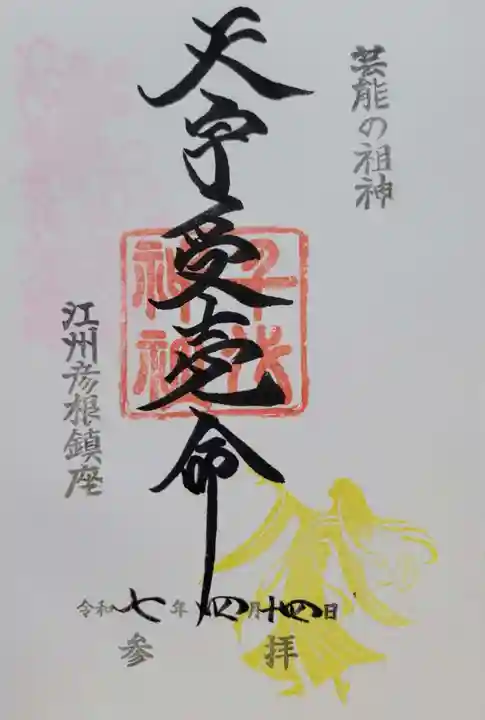 芸能の祖神
天宇受売命
千代神社
江州彦根鎮座
令和七年四月十四日
参拝